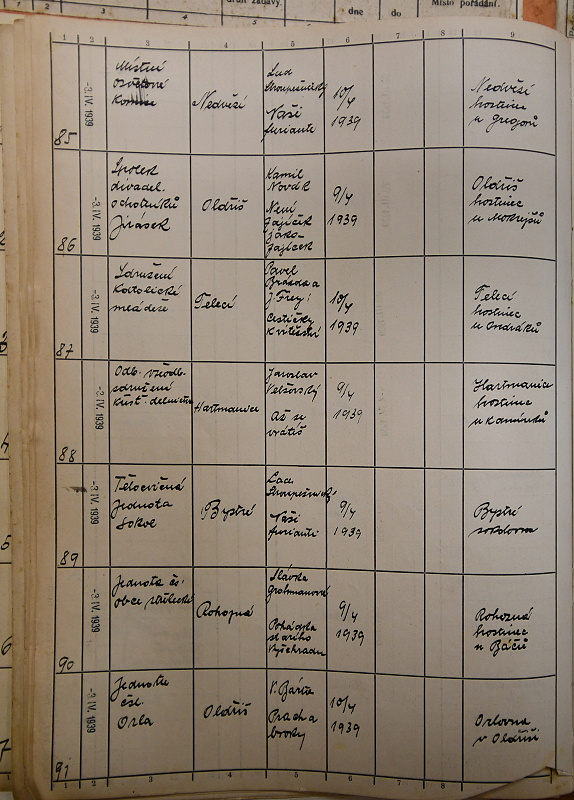 druh zábavy.
dne
do
Místo pořádání.
1 2 3 4 5 6 7 8 9
85
-3. IV. 1939
Místní
osvětová
komise
Nedvězí
Lad
Stroupežnický
Naši
furianti
10/4
1939
Nedvězí
hostinec
u Gregorů
86
-3. IV. 1939
Spolek
divadel.
ochotníků
Jirásek
Oldřiš
Kamil
Novák
Není
zajíček
jako
zajíček
9/4
1939
Oldřiš
hostinec
u Mokrejšů
87
-3. IV. 1939
Sdružení
Katolické
mládeže
Telecí
Pavel
J. Frey:
Cestičky
k vítězství
10/4
1939
Telecí
hostinec
u Ondráků
88
-3. IV. 1939
Odb. všeodb.
sdružení
křesť. dělnictva
Hartmanice
Jaroslav
Až se
vrátíš
9/4
1939
Hartmanice
hostinec
u Kamínků
89
-3. IV. 1939
Tělocvičná
Jednota
Sokol
Bystré
Lad.
Stroupežnický
Naši
furianti
9/4
1939
Bystré
sokolovna
90
-3. IV. 1939
Jednota čs.
obce střelecké
Rohozná
Slávka
Grohmanová
Pohádka
starého
Vyšehradu
9/4
1939
Rohozná
hostinec
u Báčů
91
-3. IV. 1939
Jednota
čsl.
Orla
Oldřiš
V. Bárta
Prach a
broky
10/4
1939
Orlovna
v Oldřiši
1 2 3 4 5 6 7 8 9